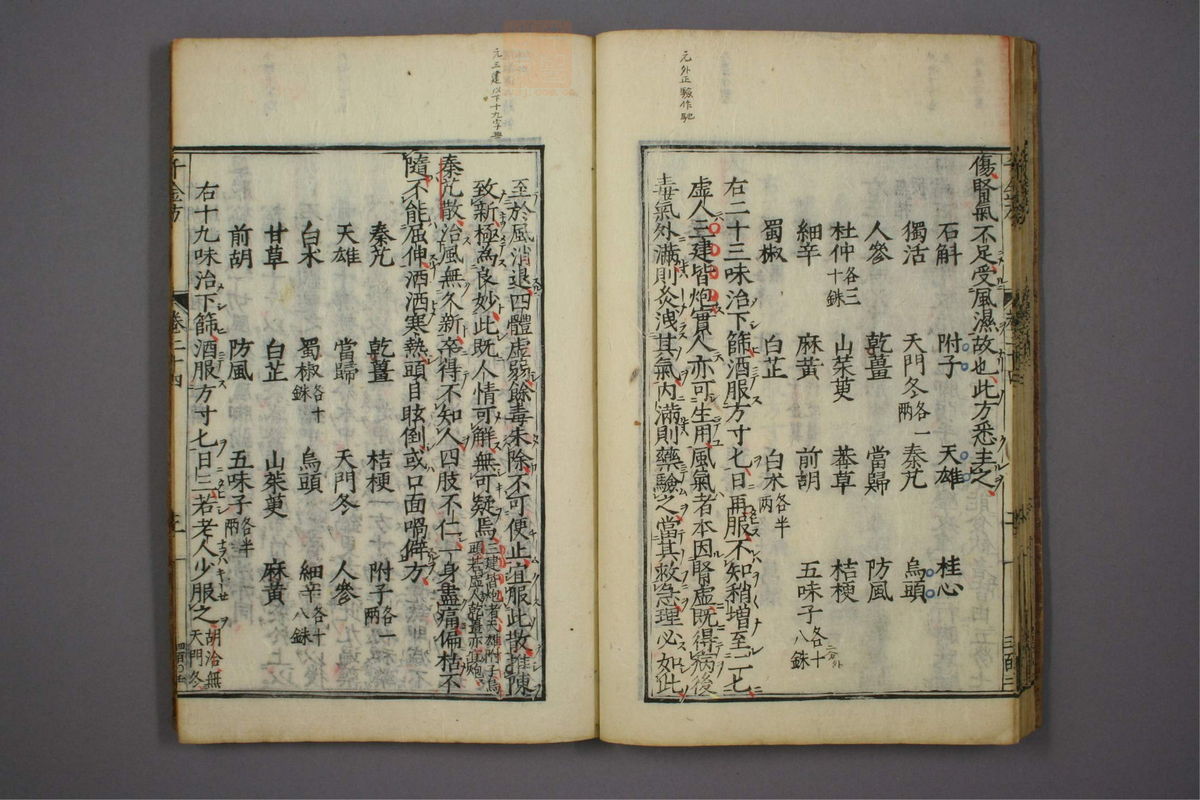 元外正驗作馳
傷腎氣不足受風濕故也此方悉主之
石斛　附子　天雄　桂心
獨活　天門冬各一兩　秦艽　烏頭
人參　乾薑　當歸　防風
杜仲各三十銖　山茱萸　莽草　桔梗
細辛　麻黃　前胡　五味子各十八銖
蜀椒　白芷　白朮各半兩
右二十三味治下篩酒服方寸匕日再服不知稍增至二匕
虛人三建皆炮實人亦可生用風氣者本因腎虛既得病後
毒氣外滿則灸洩其氣內滿則藥驗之當其救急理必如此
元三建以下十九字無
至於風消退四體虛弱餘毒未除不可便止宜服此散推陳
致新極為良妙此既人情可解無可疑焉三建皆炮者天雄附子烏頭若虛人乾薑亦炮
秦艽散治風無久新卒得不知人四肢不仁一身盡痛偏枯不
隨不能屈伸洒洒寒熱頭目眩倒或口面喎僻方
秦艽　乾薑　桔梗　附子各一兩
天雄　當歸　天門冬　人參
白朮　蜀椒各十銖　烏頭　細辛各十八銖
甘草　白芷　山茱萸　麻黃
前胡　防風　五味子各半兩
右十九味治下篩酒服方寸匕日三若老人少服之胡洽無天門冬
千金方　卷二十四